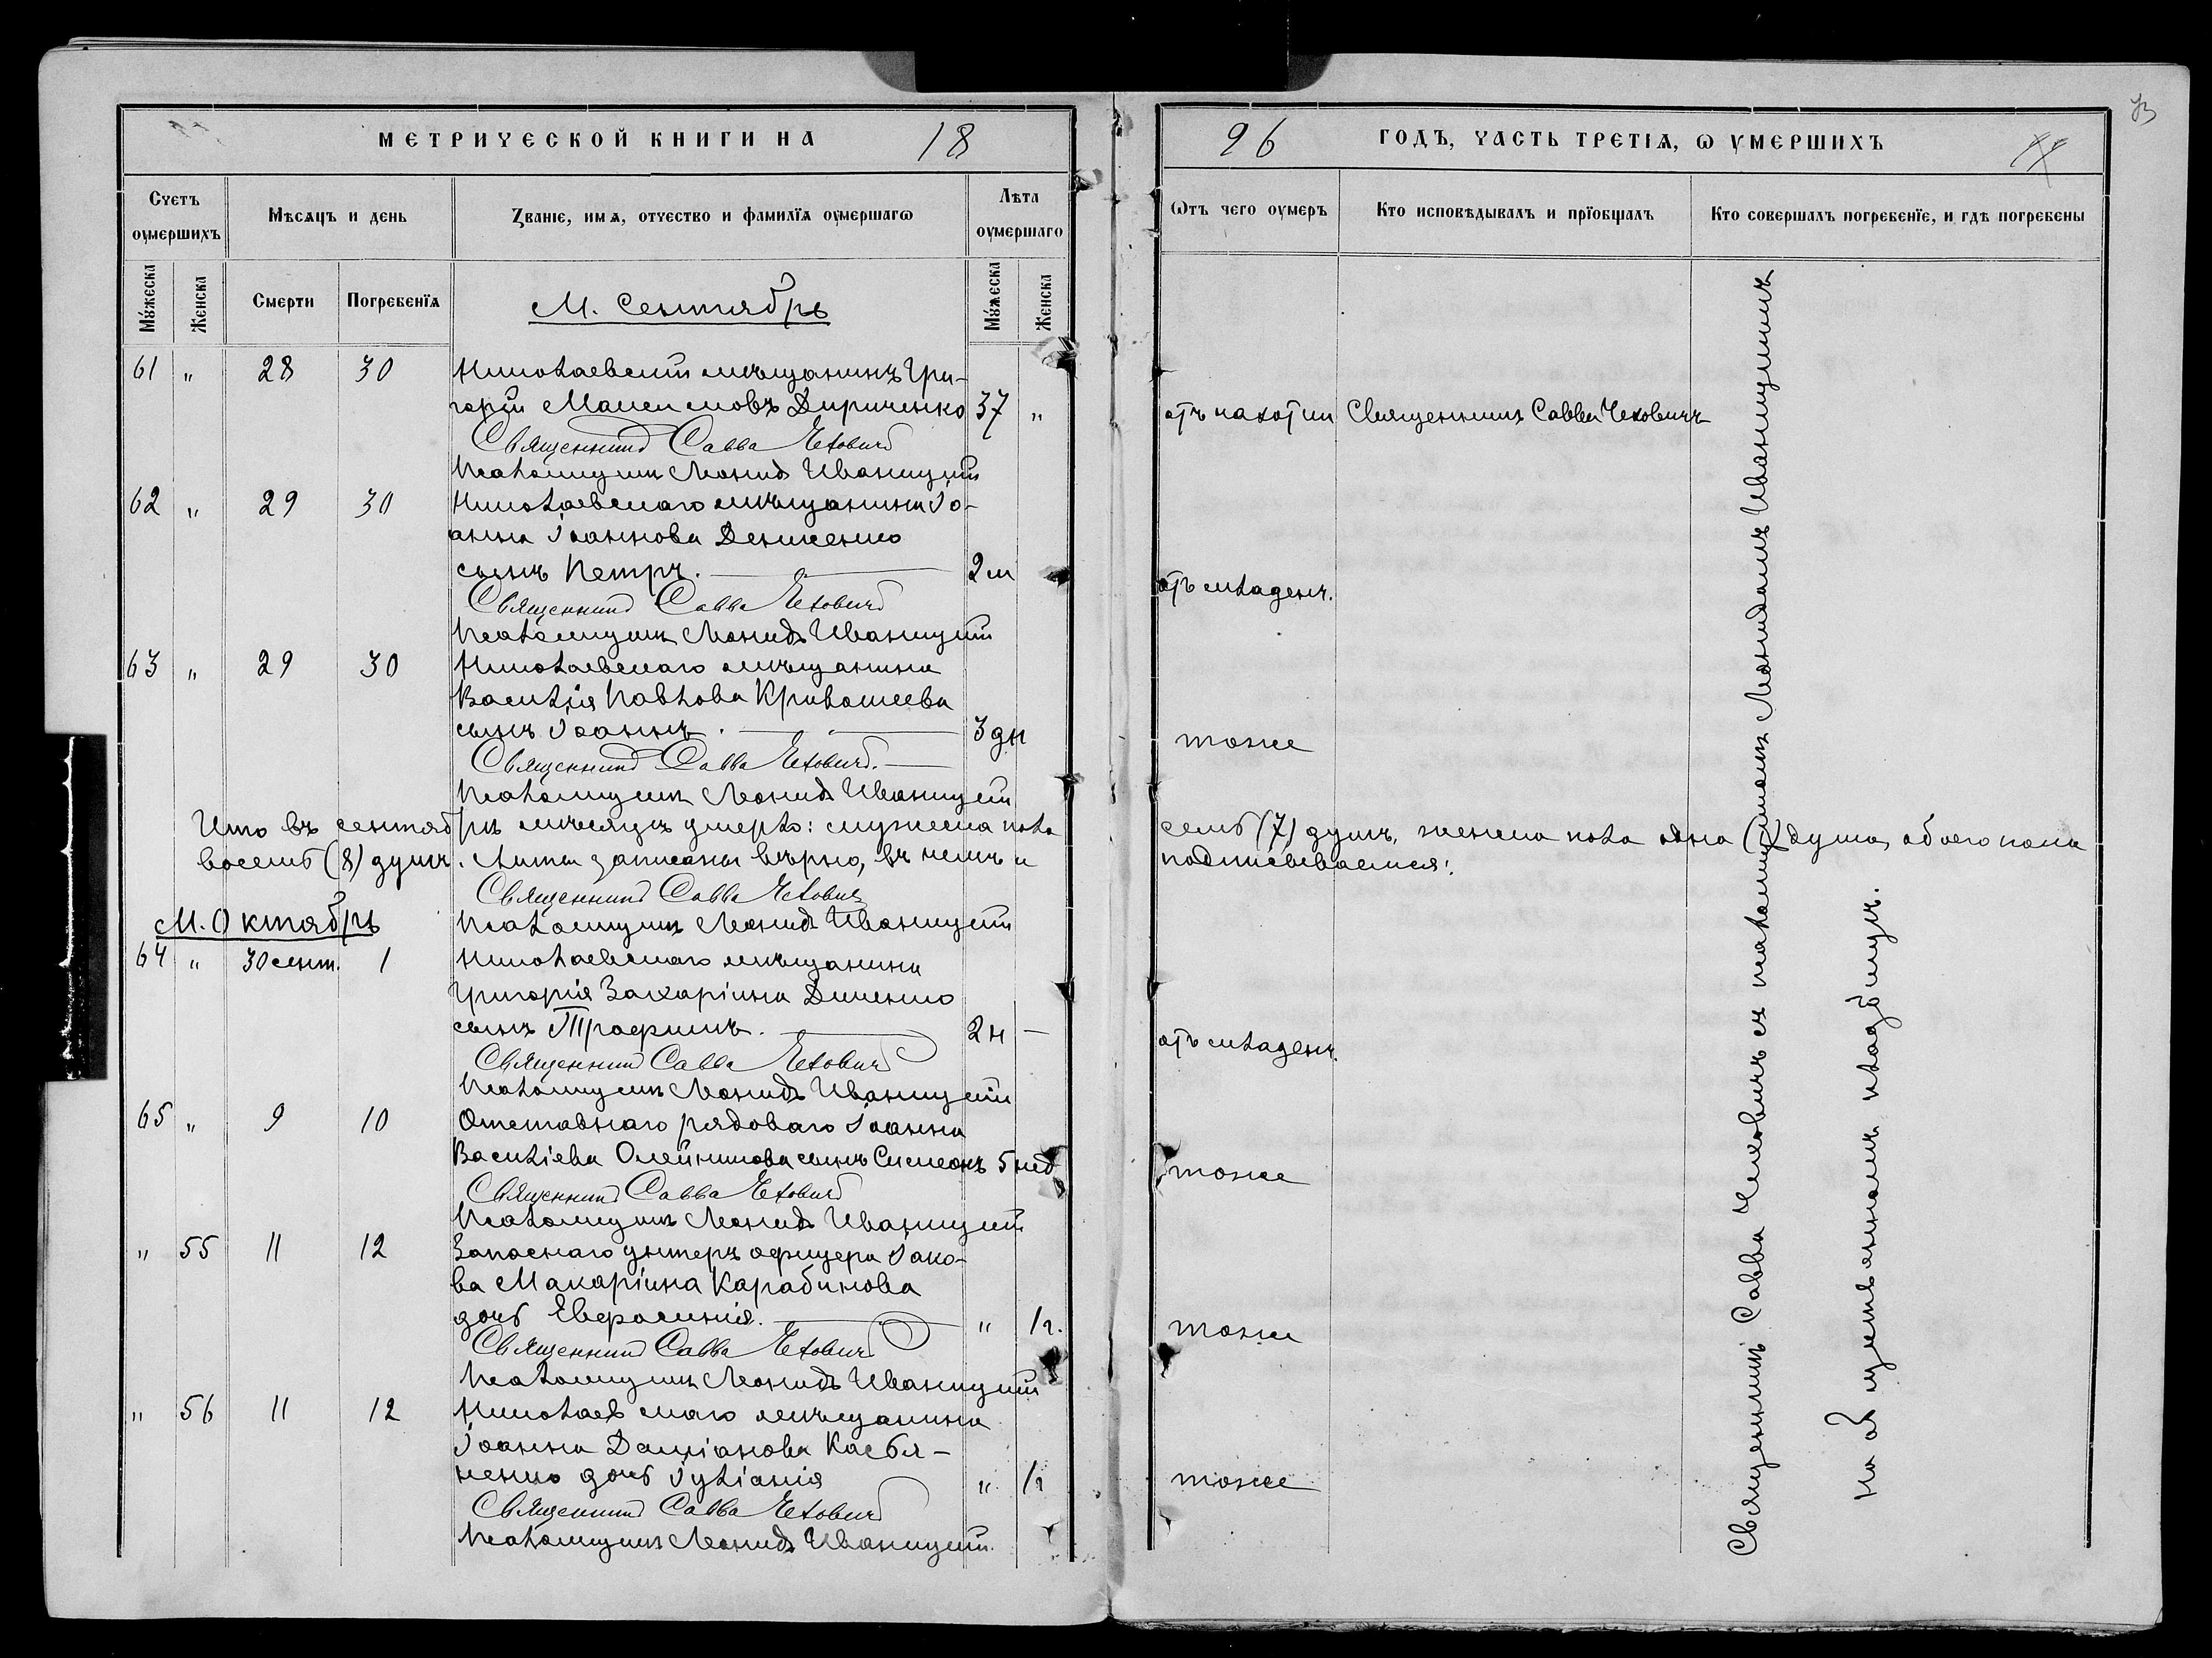 МЕТРИЧЕСКОЙ КНИГИ НА 18
Счетъ оумершихъ
Мѣсяцъ и день
Званіе, имя, отчество и фамилїя оумершагѡ
Лѣта оумершаго
Мꙋжеска
Женска
Смерти
Погребенїя
Мꙋжеска
Женска
М. Сентябрь
61 " 28 30 Николаевскій мѣщанинъ Гри-
горій Максимовъ Дириченко 37 "
Священникъ Савва Чеховичъ
Псаломщикъ Леонидъ Иваницкій
62 " 29 30 Николаевскаго мѣщанина Іо-
анна Іоаннова Денисенко
сынъ Петръ. 2 м
Священникъ Савва Чеховичъ
Псаломщикъ Леонидъ Иваницкій
63 " 29 30 Николаевскаго мѣщанина
Василія Павлова Кривошеева
сынъ Іоаннъ. 3 дн
Священникъ Савва Чеховичъ.
Псаломщикъ Леонидъ Иваницкій
Что въ сентябрѣ мѣсяцѣ умерло: мужеска пола
восемь (8) душъ. Акты записаны вѣрно, въ чемъ и
Священникъ Савва Чеховичъ
М. Октябрь Псаломщикъ Леонидъ Иваницкій
64 " 30 сент. 1 Николаевскаго мѣщанина
Григорія Захаріина Диченко
сынъ Трофимъ. 2 н —
Священникъ Савва Чеховичъ
Псаломщикъ Леонидъ Иваницкій
65 " 9 10 Отставнаго рядоваго Іоанна
Василіева Олейникова сынъ Симеонъ 5 нед
Священникъ Савва Чеховичъ
Псаломщикъ Леонидъ Иваницкій
" 55 11 12 Запаснаго унтеръ офицера Іако-
ва Макаріина Карабинова
дочь Евфросинія. " 1 г.
Священникъ Савва Чеховичъ
Псаломщикъ Леонидъ Иваницкій
" 56 11 12 Николаевскаго мѣщанина
Іоанна Даміанова Касья-
ненко дочь Іуліанія " 1 г
Священникъ Савва Чеховичъ
Псаломщикъ Леонидъ Иваницкій.
96 ГОДЪ, ЧАСТЬ ТРЕТІЯ, Ѡ УМЕРШИХЪ
Ѿтъ чего оумеръ
Кто исповѣдывалъ и прїобщалъ
Кто совершалъ погребенїе, и гдѣ погребены
отъ чахотки Священникъ Савва Чеховичъ
отъ младенч.
тоже
семь (7) душъ, женска пола одна (1) душа, обоего пола
подписываемся:
отъ младенч.
тоже
тоже
тоже
Священникъ Савва Чеховичъ съ псаломщикомъ Леонидомъ Иваницкимъ
На общественномъ кладбищѣ.